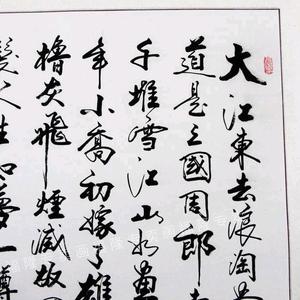 大江東去浪淘
道是三國周郎
千堆雪江山如畫
年小喬初嫁了雄
檣灰飛煙滅故
髮人生如夢一樽